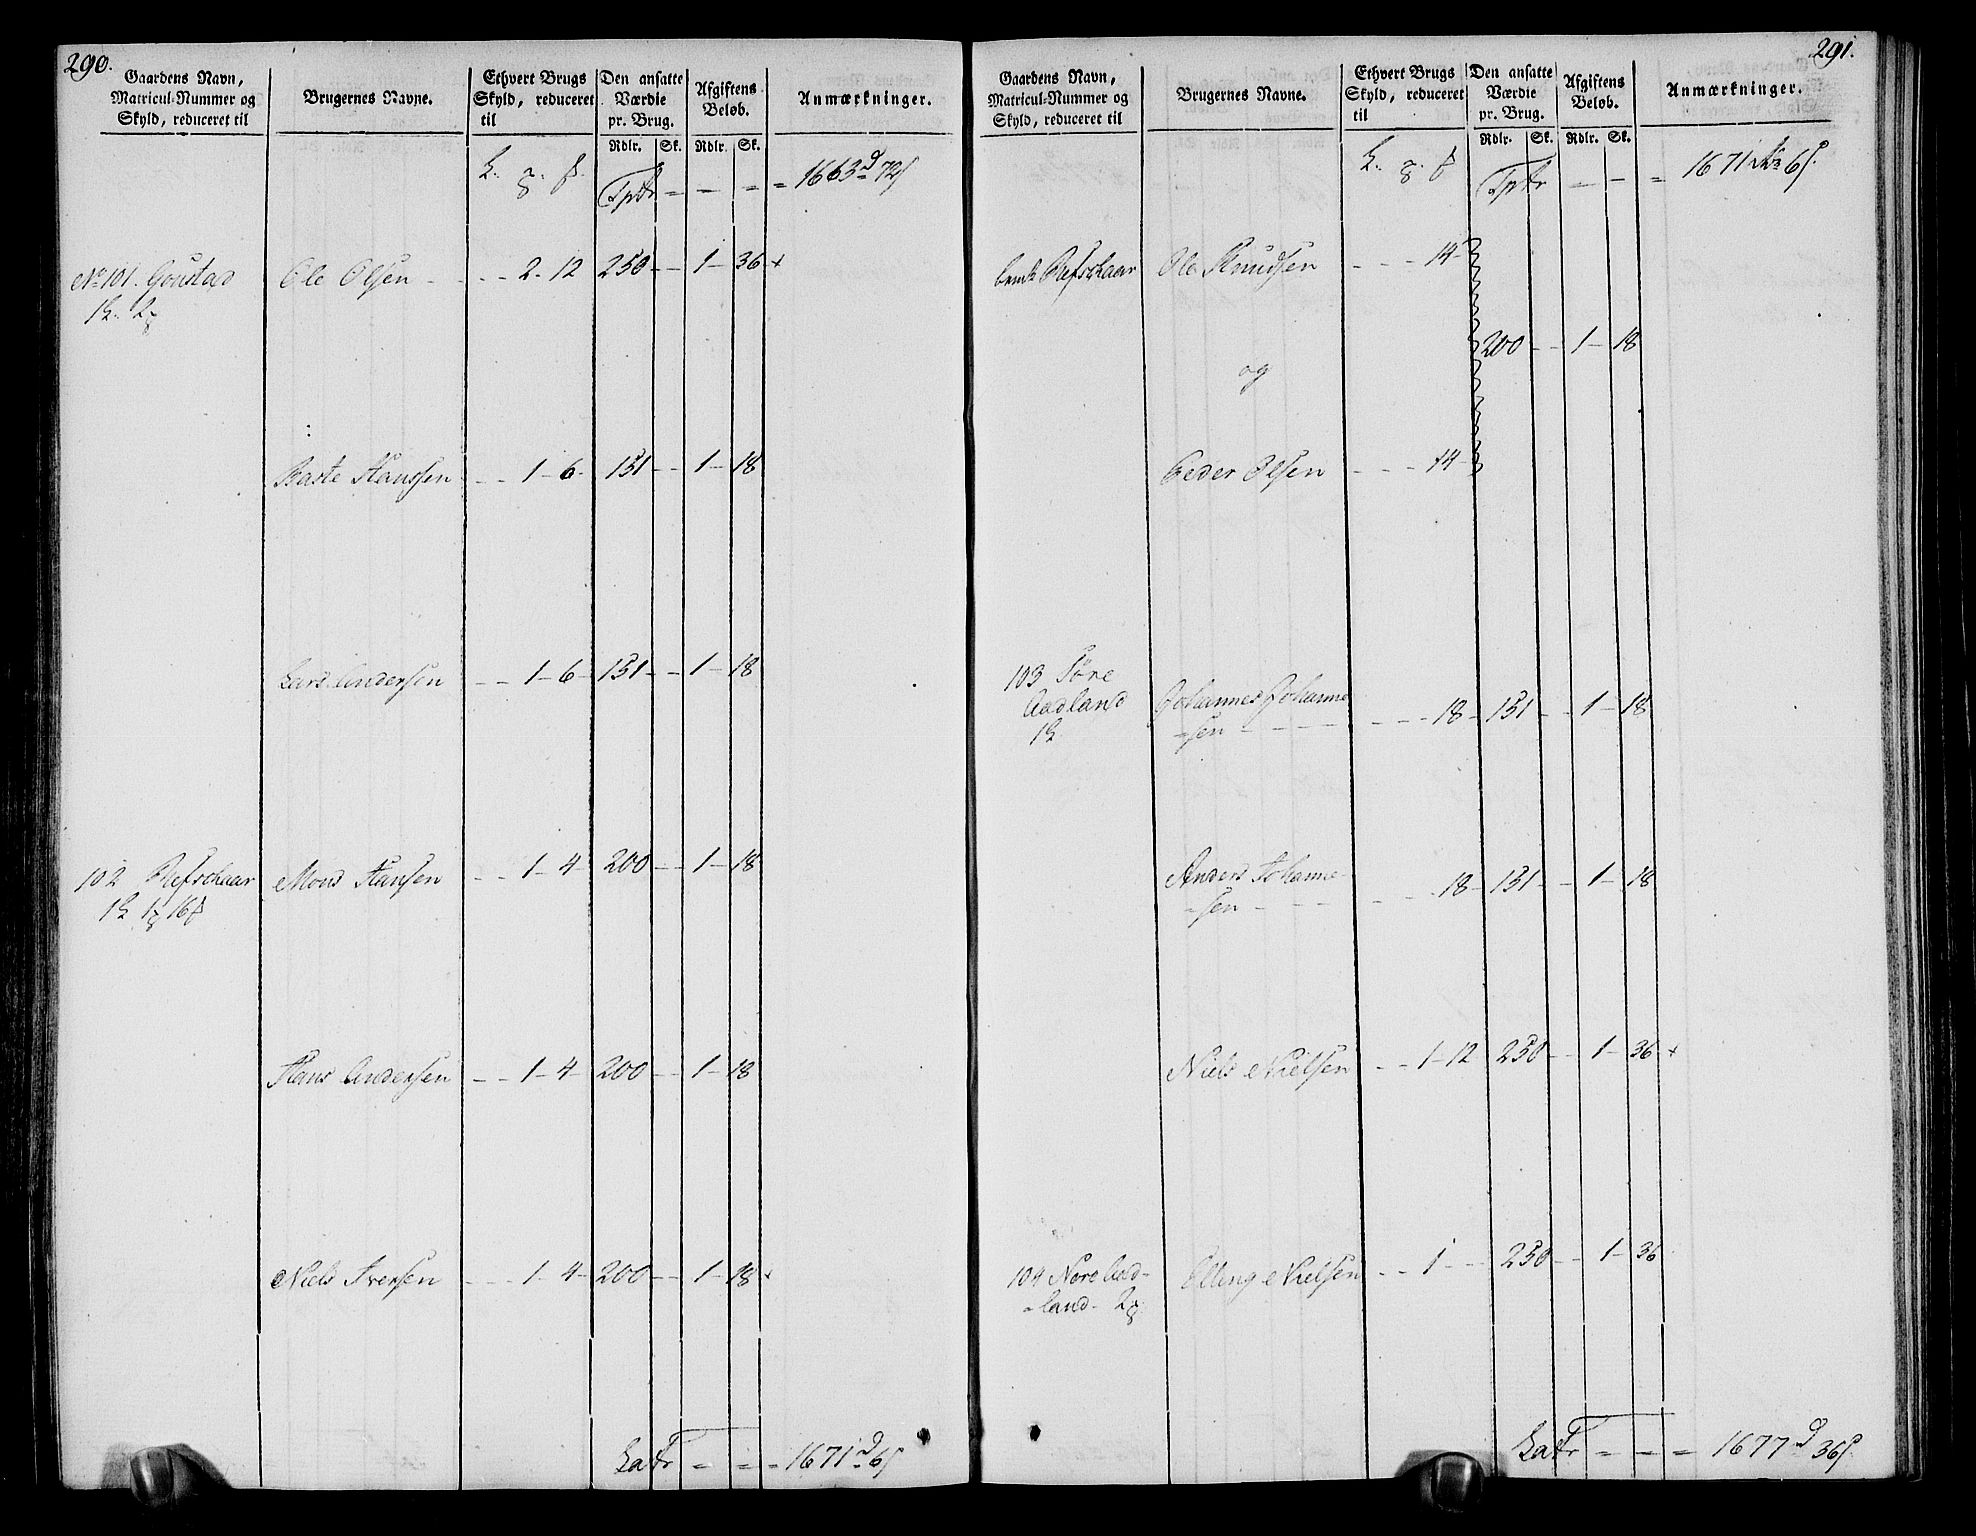 290.
Gaardens Navn, Matricul-Nummer og Skyld, reduceret til
Brugernes Navne.
Ethvert Brugs Skyld, reduceret til
Den ansatte Værdie pr. Brug.
Afgiftens Beløb.
Anmærkninger.
Rdlr. Sk. Rdlr. Sk.
Tpdr - - - - 1663 72
No 101. Gonstad Ole Olsen - - - 2 - 12 250 - - 1 - 36
Baste Hanssen - - 1 - 6 - 151 - - 1 - 18
Lars Andersen - - 1 - 6 - 151 - - 1 - 18
102 Refschaar Mons Hansen - - 1 - 4 - 200 - - 1 - 18
Hans Andersen - - 1 - 4 - 200 - - 1 - 18
Niels Iversen - - - 1 - 4 - 200 - - 1 - 18
LaTr - - - 1671 6
291.
Gaardens Navn, Matricul-Nummer og Skyld, reduceret til
Brugernes Navne.
Ethvert Brugs Skyld, reduceret til
Den ansatte Værdie pr. Brug.
Afgiftens Beløb.
Anmærkninger.
Rdlr. Sk. Rdlr. Sk.
Tpdr - - - 1671 6
Refschaar Ole Knudsen - - - 14 -
200 - - 1 - 18
og
Peder Olsen - - - 14 -
103 Søre
Aadland Johannes Johanne
-sen - - - - - - 18 - 151 - - 1 - 18
Anders Johanne-
-sen - - - - - 18 - 151 - - 1 - 18
Niels Nielsen - - 1 - 12 250 - - 1 - 36
104 Nore Aad- Elling Nielsen - - 1 - - 250 - - 1 - 36
-land -
LaTr - - - 1677 36